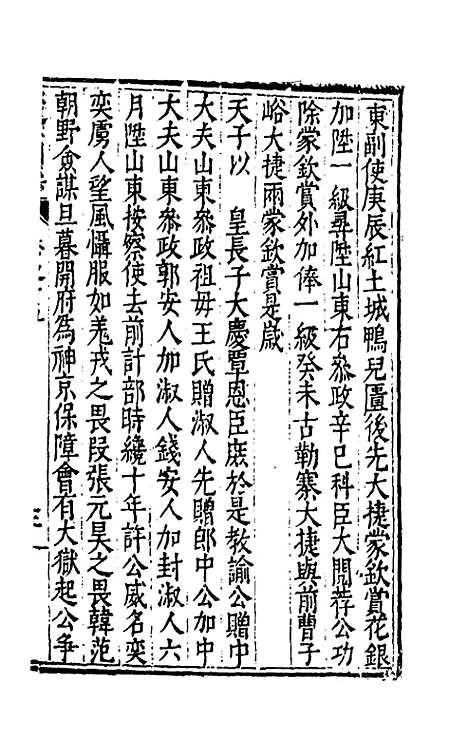 東副使庚辰紅土城鴨兒匱後先大捷蒙欽賞花銀
加陞一級尋陞山東右叅政辛巳科臣大閱荐公功
除蒙欽賞外加俸一級癸未古勒寨大捷與前曹子
峪大捷兩蒙欽賞是歲
天子以 皇長子大慶覃恩臣庶於是教諭公贈中
大夫山東叅政祖母王氏贈淑人先贈郎中公加中
大夫山東叅政郭安人加淑人錢安人加封淑人六
月陞山東按察使去前計部時纔十年許公威名奕
奕虜人望風懾服如羗戎之畏段張元昊之畏韓范
朝野僉謀旦暮開府為神京保障會有大獄起公爭